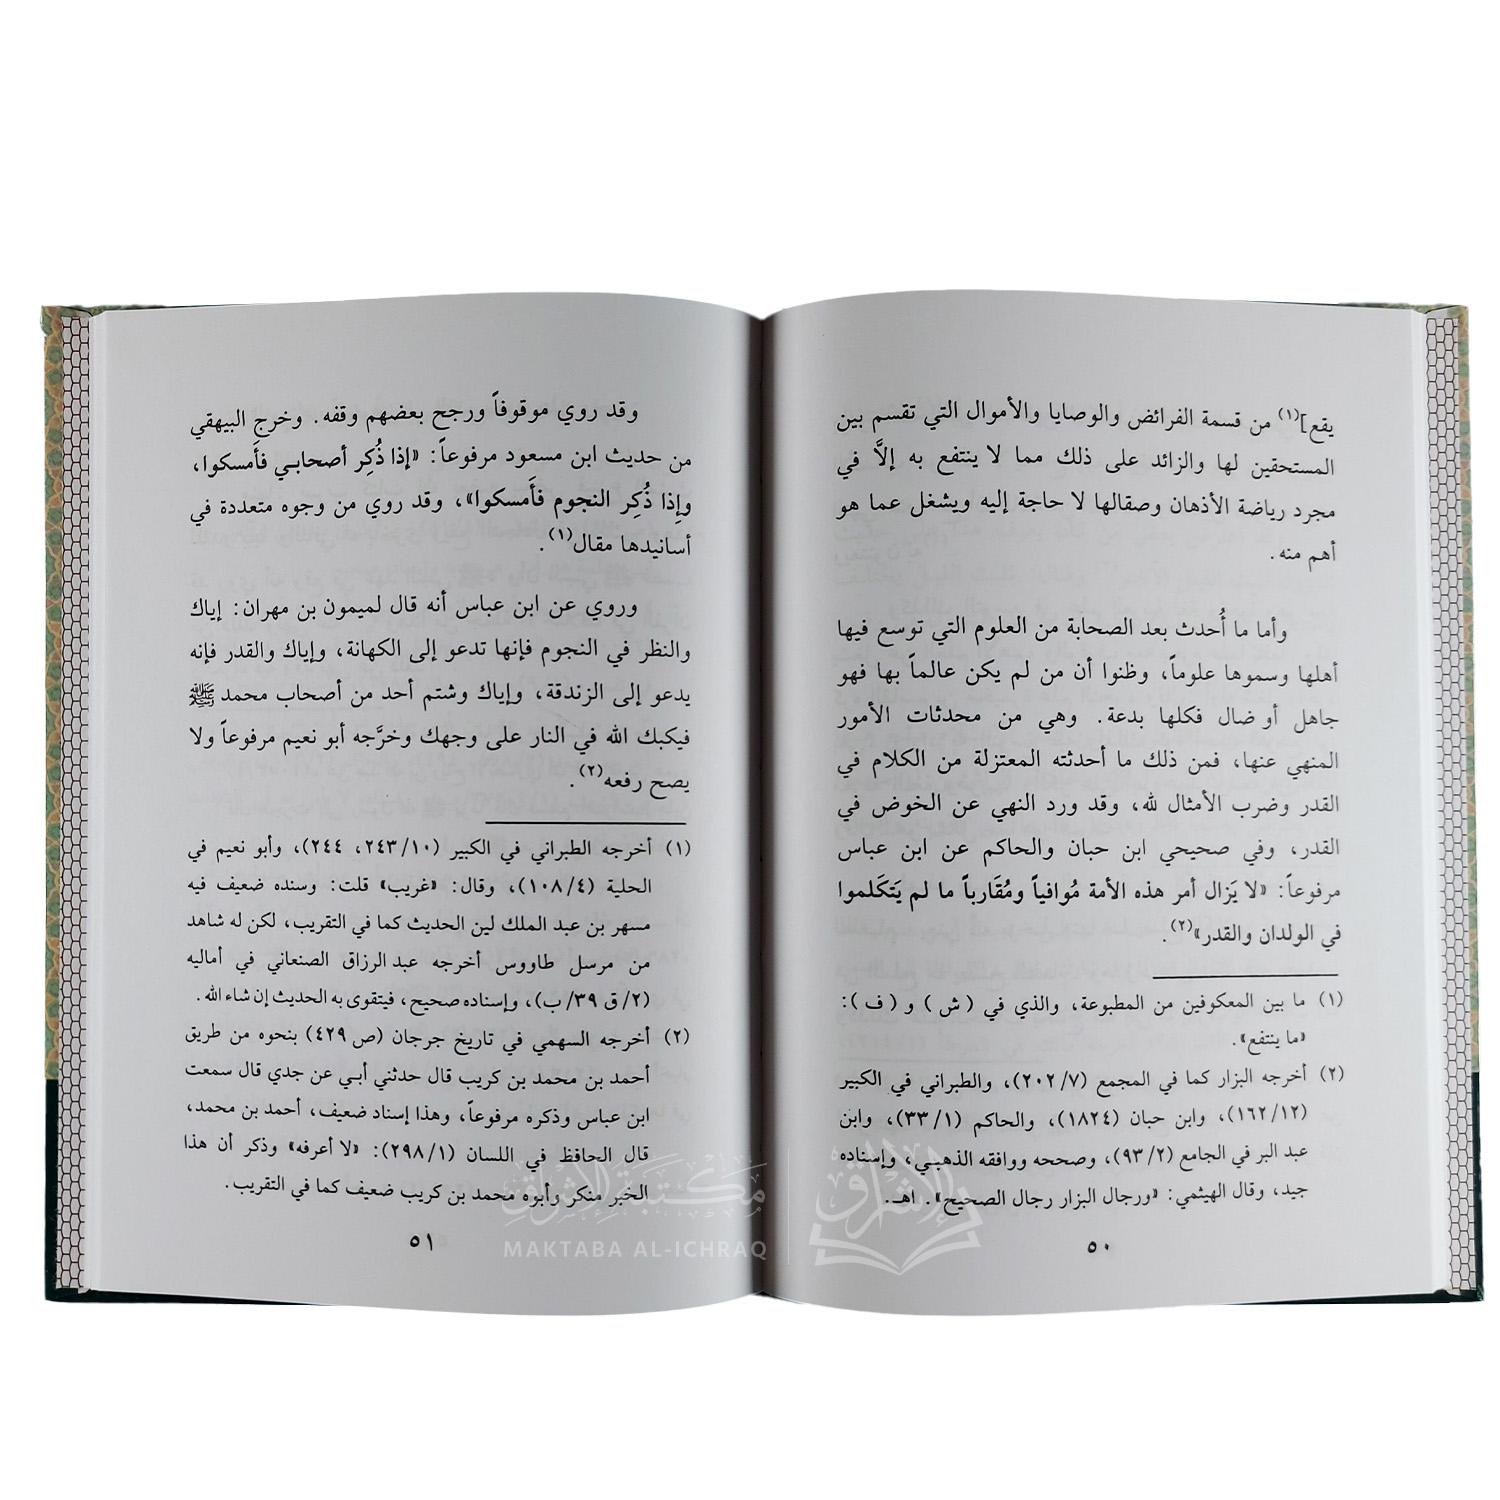 يقع](١) من قسمة الفرائض والوصايا والأموال التي تقسم بين
المستحقين لها والزائد على ذلك مما لا ينتفع به إلاَّ في
مجرد رياضة الأذهان وصقالها لا حاجة إليه ويشغل عما هو
أهم منه.
وأما ما أُحدث بعد الصحابة من العلوم التي توسع فيها
أهلها وسموها علوماً، وظنوا أن من لم يكن عالماً بها فهو
جاهل أو ضال فكلها بدعة. وهي من محدثات الأمور
المنهي عنها، فمن ذلك ما أحدثته المعتزلة من الكلام في
القدر وضرب الأمثال لله، وقد ورد النهي عن الخوض في
القدر، وفي صحيحي ابن حبان والحاكم عن ابن عباس
مرفوعاً: «لا يَزال أمر هذه الأمة مُوافياً ومُقَارباً ما لم يَتَكَلموا
في الولدان والقدر»(٢).
(١) ما بين المعكوفين من المطبوعة، والذي في (ش) و (ف):
«ما ينتفع».
(٢) أخرجه البزار كما في المجمع (٢٠٢/٧)، والطبراني في الكبير
(١٦٢/١٢)، وابن حبان (١٨٢٤)، والحاكم (٣٣/١)، وابن
عبد البر في الجامع (٩٣/٢)، وصححه ووافقه الذهبي، وإسناده
جيد، وقال الهيثمي: «ورجال البزار رجال الصحيح». اهـ.
٥٠
وقد روي موقوفاً ورجح بعضهم وقفه. وخرج البيهقي
من حديث ابن مسعود مرفوعاً: «إذا ذُكِر أصحابي فأَمسكوا،
وإِذا ذُكِر النجوم فأَمسكوا»، وقد روي من وجوه متعددة في
أسانيدها مقال(١).
وروي عن ابن عباس أنه قال لميمون بن مهران: إياك
والنظر في النجوم فإنها تدعو إلى الكهانة، وإياك والقدر فإنه
يدعو إلى الزندقة، وإياك وشتم أحد من أصحاب محمد ﷺ
فيكبك الله في النار على وجهك وخرَّجه أبو نعيم مرفوعاً ولا
يصح رفعه(٢).
(١) أخرجه الطبراني في الكبير (٢٤٣/١٠، ٢٤٤)، وأبو نعيم في
الحلية (١٠٨/٤)، وقال: «غريب» قلت: وسنده ضعيف فيه
مسهر بن عبد الملك لين الحديث كما في التقريب، لكن له شاهد
من مرسل طاووس أخرجه عبد الرزاق الصنعاني في أماليه
(٢/ق ٣٩/ب)، وإسناده صحيح، فيتقوى به الحديث إن شاء الله.
(٢) أخرجه السهمي في تاريخ جرجان (ص ٤٢٩) بنحوه من طريق
أحمد بن محمد بن كريب قال حدثني أبي عن جدي قال سمعت
ابن عباس وذكره مرفوعاً، وهذا إسناد ضعيف، أحمد بن محمد،
قال الحافظ في اللسان (٢٩٨/١): «لا أعرفه» وذكر أن هذا
الخبر منكر وأبوه محمد بن كريب ضعيف كما في التقريب.
٥١
مكتبة الإشراق
MAKTABA AL-ICHRAQ
الإشراق